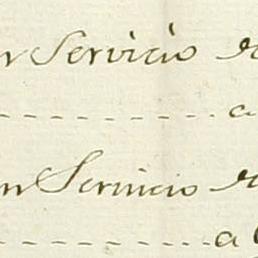 n Servicio de
a
n Servicio de
a